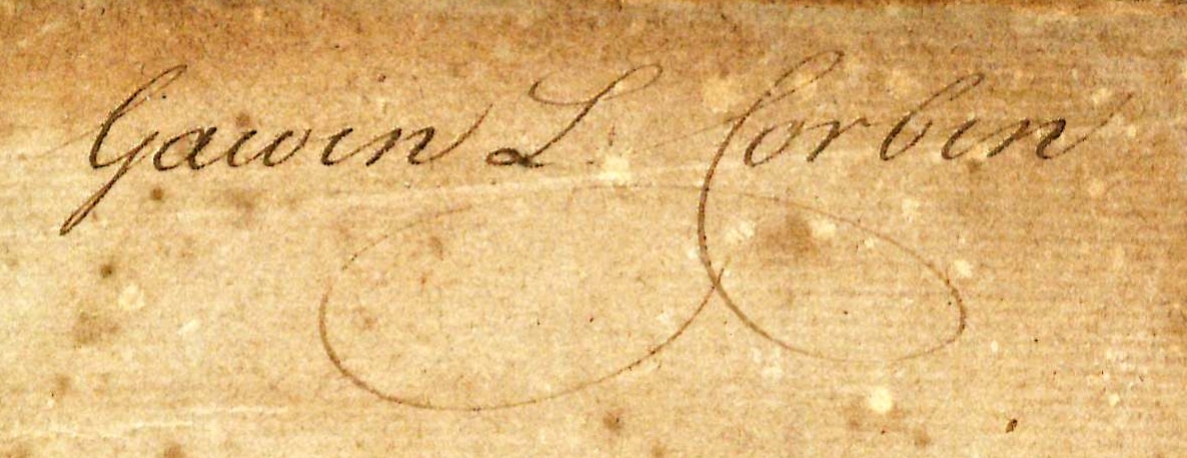 Gawin L. Corbin